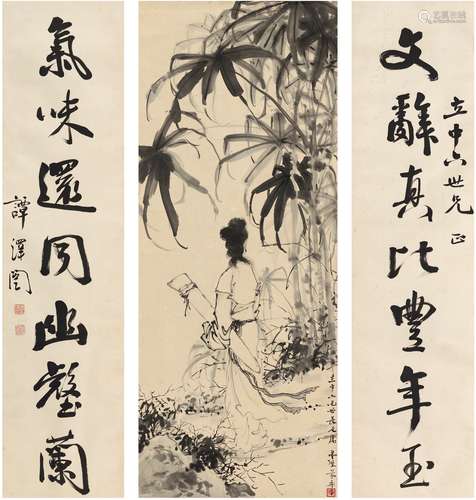 文辭真比豐年玉
立中六世兄正
氣味還同幽壑蘭
譚澤闓